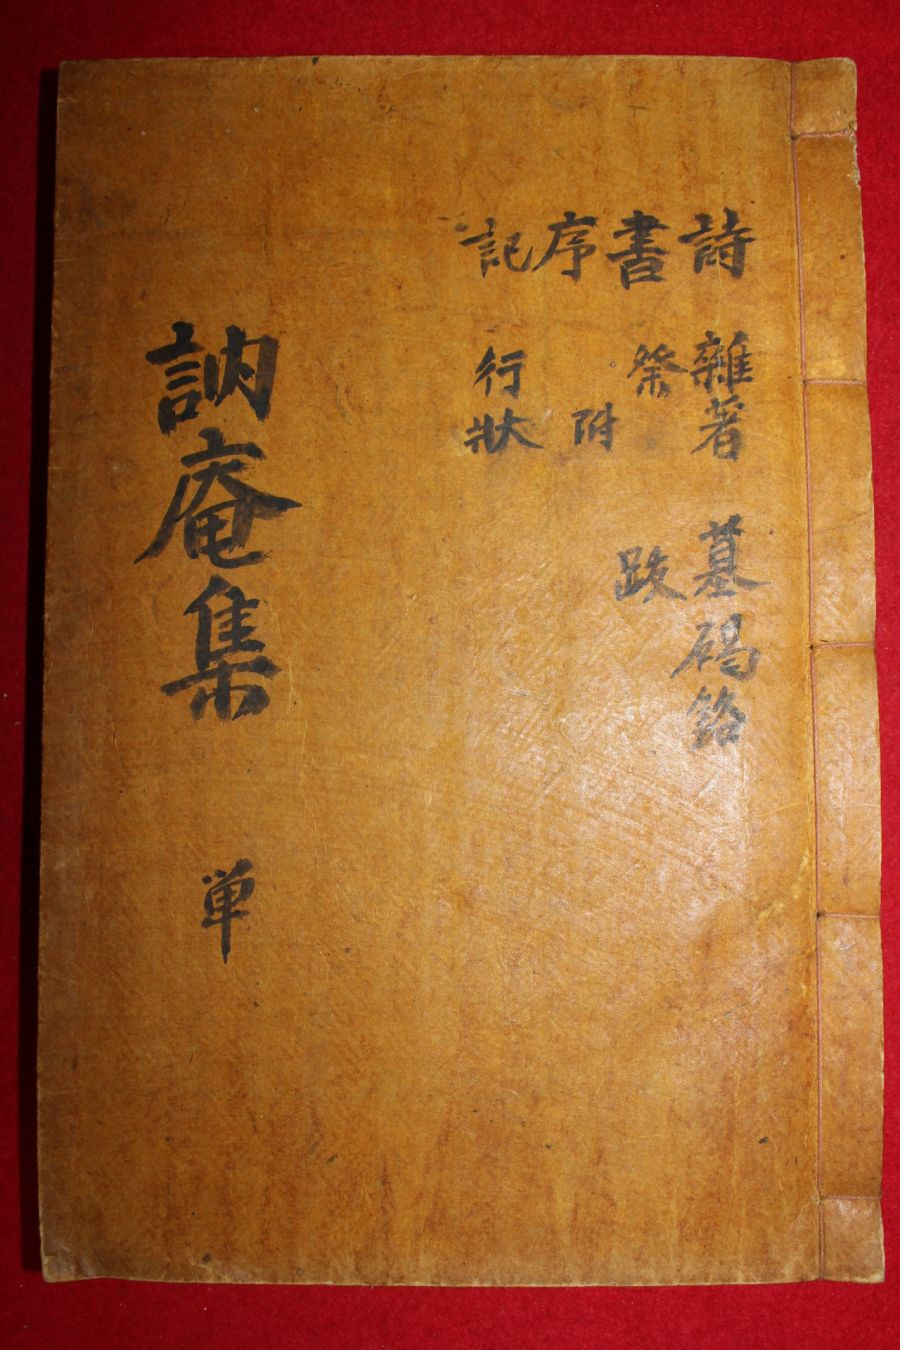 詩 雜著 墓碣銘
書 祭 跋
序 附
記 行狀
訥庵集 単